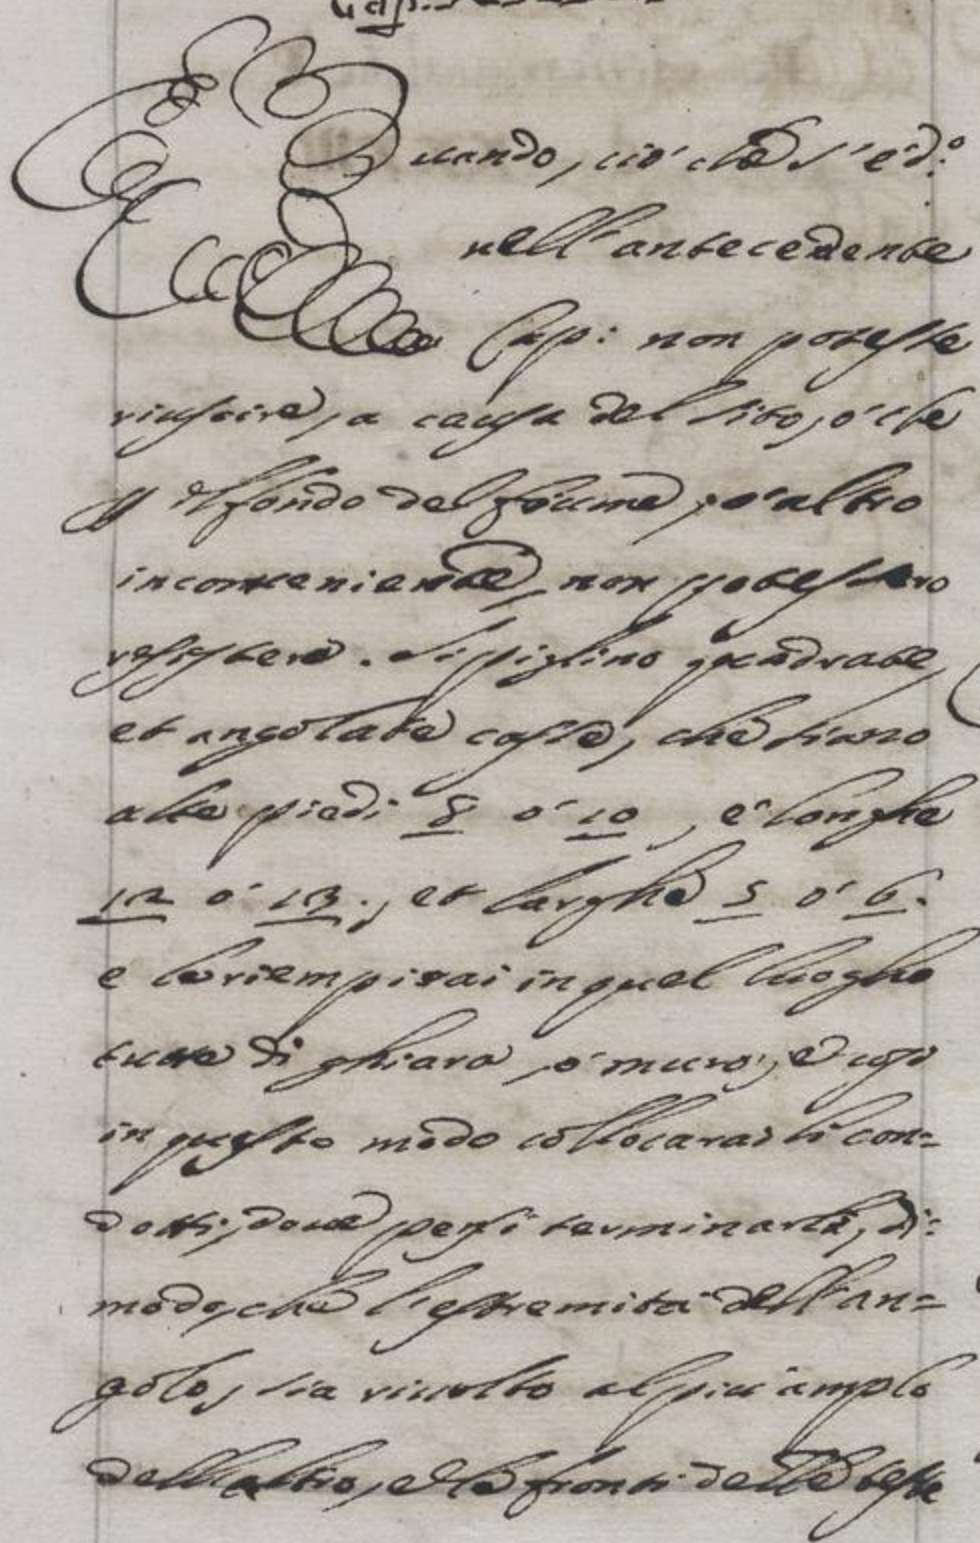 Quando, ciò che s'è d:º
nell'antecedente
Cap: non potesse
riuscire, a causa del sito, ò che
il fondo del fiume, ò altro
inconueniente, non potessero
resistere. Si piglino quadrate,
et angolate casse, che siano
alte piedi 8 ó 10, é longhe
12 ó 13., et larghe 5 ó 6.
e le riempirai in quel luogho
tutte di ghiara, ó muro, e cosi
in questo modo collocarai li con=
dotti, doue pensi terminarli, di=
modo, che l'estremità dell'an=
golo, sia riuolto al piu amplo
dell'altro, e le fronti delle teste